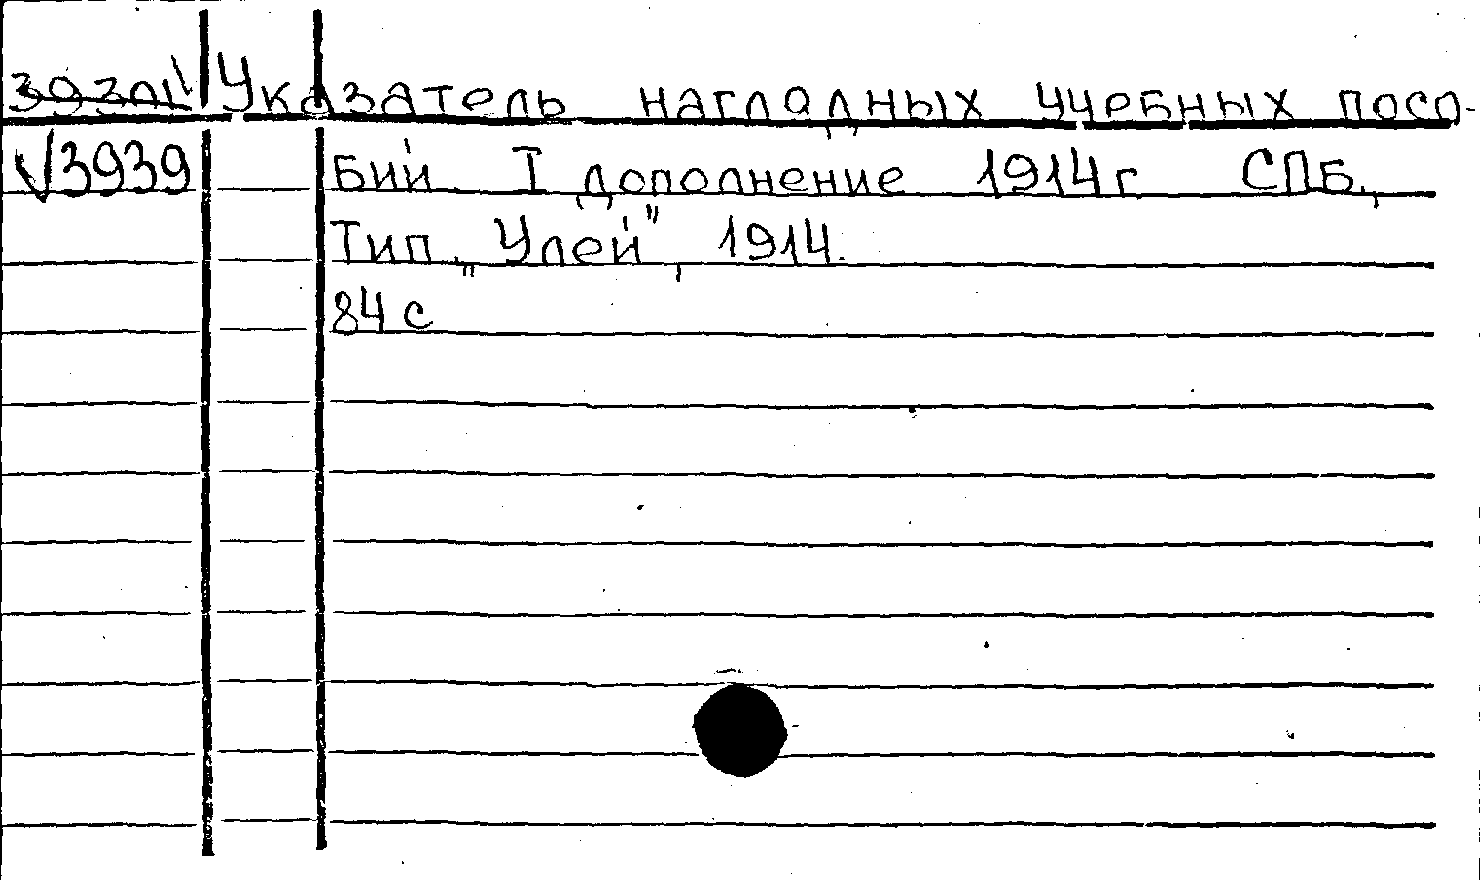 Указатель нагладных учебных посо-
√3939 бий I дополнение 1914г СПБ.,
Тип. „Улей", 1914.
84 с